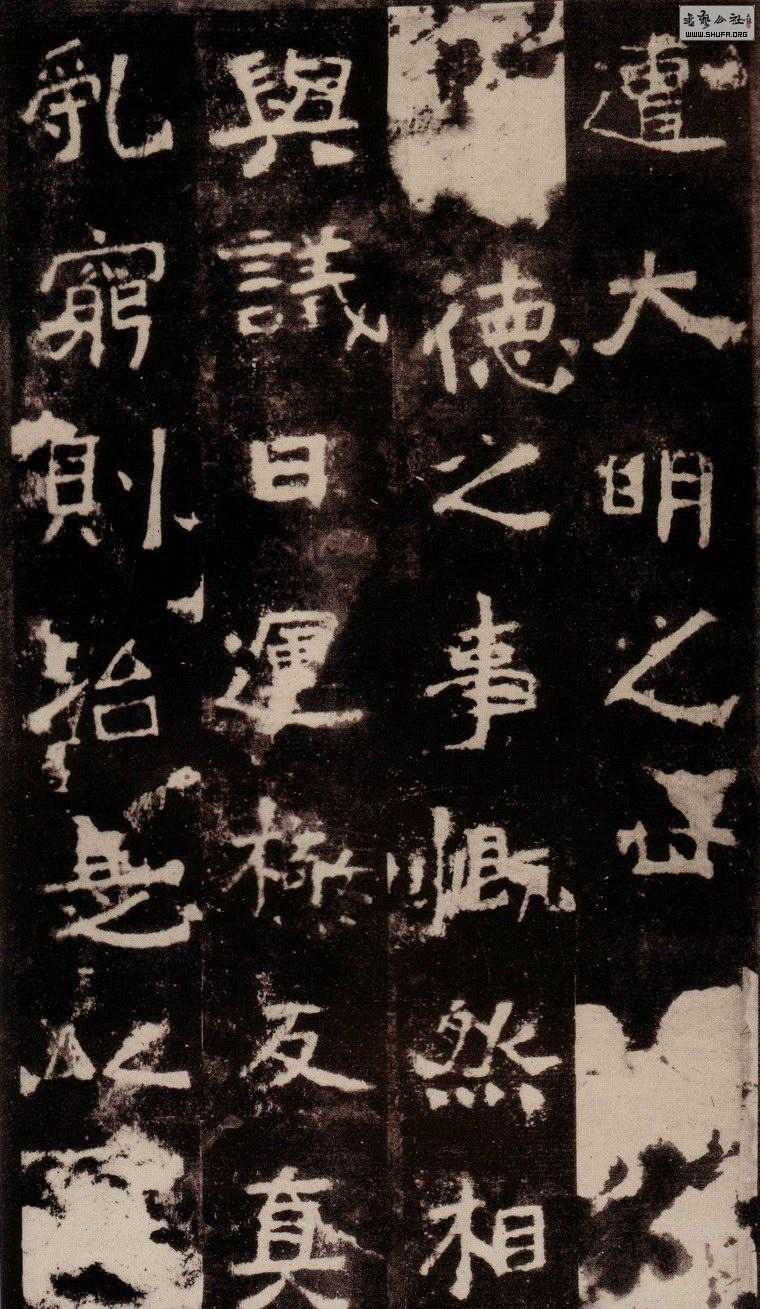 遭大明之世
德之事慨然相
與議曰運極反真
乱窮則治是以
書艺公社
WWW.SHUFA.ORG